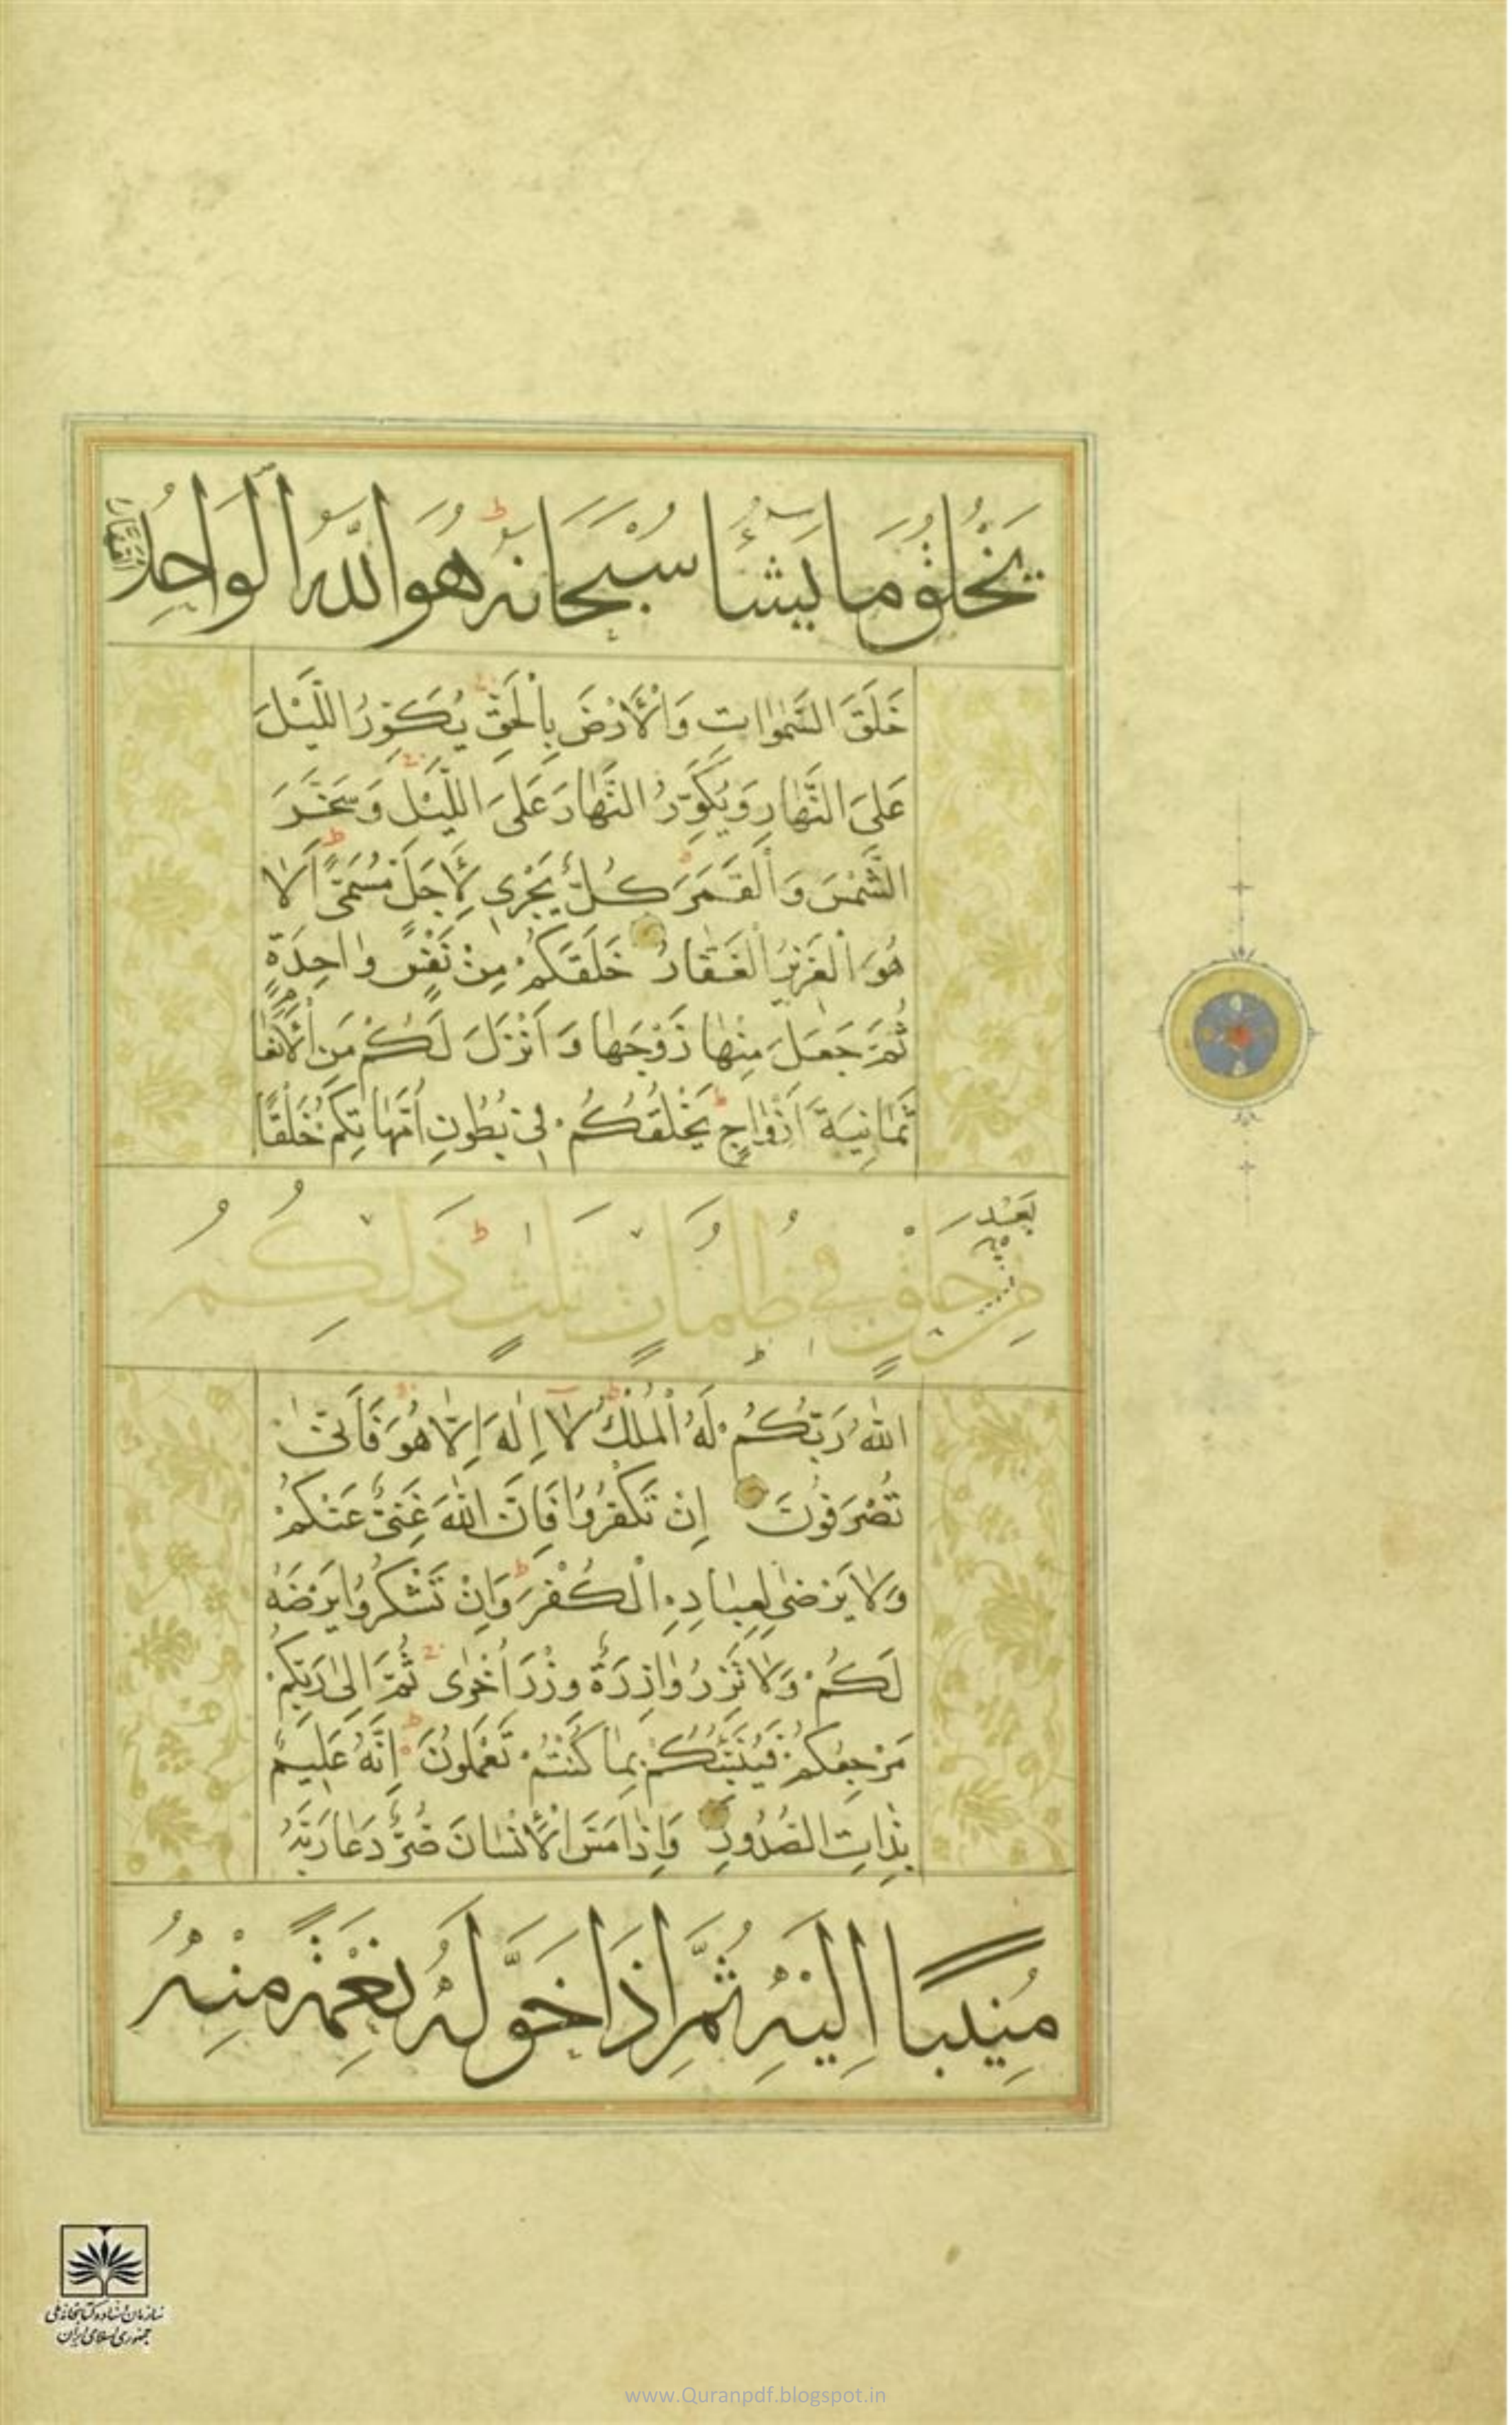 يَخْلُقُ مَا يَشَآءُ سُبْحَانَهُ هُوَ اللّٰهُ الْوَاحِدُ الْقَهَّارُ
خَلَقَ السَّمٰوَاتِ وَالْأَرْضَ بِالْحَقِّ يُكَوِّرُ اللَّيْلَ
عَلَى النَّهَارِ وَيُكَوِّرُ النَّهَارَ عَلَى اللَّيْلِ وَسَخَّرَ
الشَّمْسَ وَالْقَمَرَ كُلٌّ يَجْرِي لِأَجَلٍ مُسَمًّى أَلَا
هُوَ الْعَزِيزُ الْغَفَّارُ خَلَقَكُمْ مِنْ نَفْسٍ وَاحِدَةٍ
ثُمَّ جَعَلَ مِنْهَا زَوْجَهَا وَأَنْزَلَ لَكُمْ مِنَ الْأَنْعَامِ
ثَمَانِيَةَ أَزْوَاجٍ يَخْلُقُكُمْ فِي بُطُونِ أُمَّهَاتِكُمْ خَلْقًا
مِنْ بَعْدِ خَلْقٍ فِي ظُلُمَاتٍ ثَلٰثٍ ذٰلِكُمُ
اللّٰهُ رَبُّكُمْ لَهُ الْمُلْكُ لَا إِلٰهَ إِلَّا هُوَ فَأَنّٰى
تُصْرَفُونَ إِنْ تَكْفُرُوا فَإِنَّ اللّٰهَ غَنِيٌّ عَنْكُمْ
وَلَا يَرْضٰى لِعِبَادِهِ الْكُفْرَ وَإِنْ تَشْكُرُوا يَرْضَهُ
لَكُمْ وَلَا تَزِرُ وَازِرَةٌ وِزْرَ أُخْرٰى ثُمَّ إِلٰى رَبِّكُمْ
مَرْجِعُكُمْ فَيُنَبِّئُكُمْ بِمَا كُنْتُمْ تَعْمَلُونَ إِنَّهُ عَلِيمٌ
بِذَاتِ الصُّدُورِ وَإِذَا مَسَّ الْإِنْسَانَ ضُرٌّ دَعَا رَبَّهُ
مُنِيبًا إِلَيْهِ ثُمَّ إِذَا خَوَّلَهُ نِعْمَةً مِنْهُ
سازمان اسناد و کتابخانه ملی
جمهوری اسلامی ایران
www.Quranpdf.blogspot.in